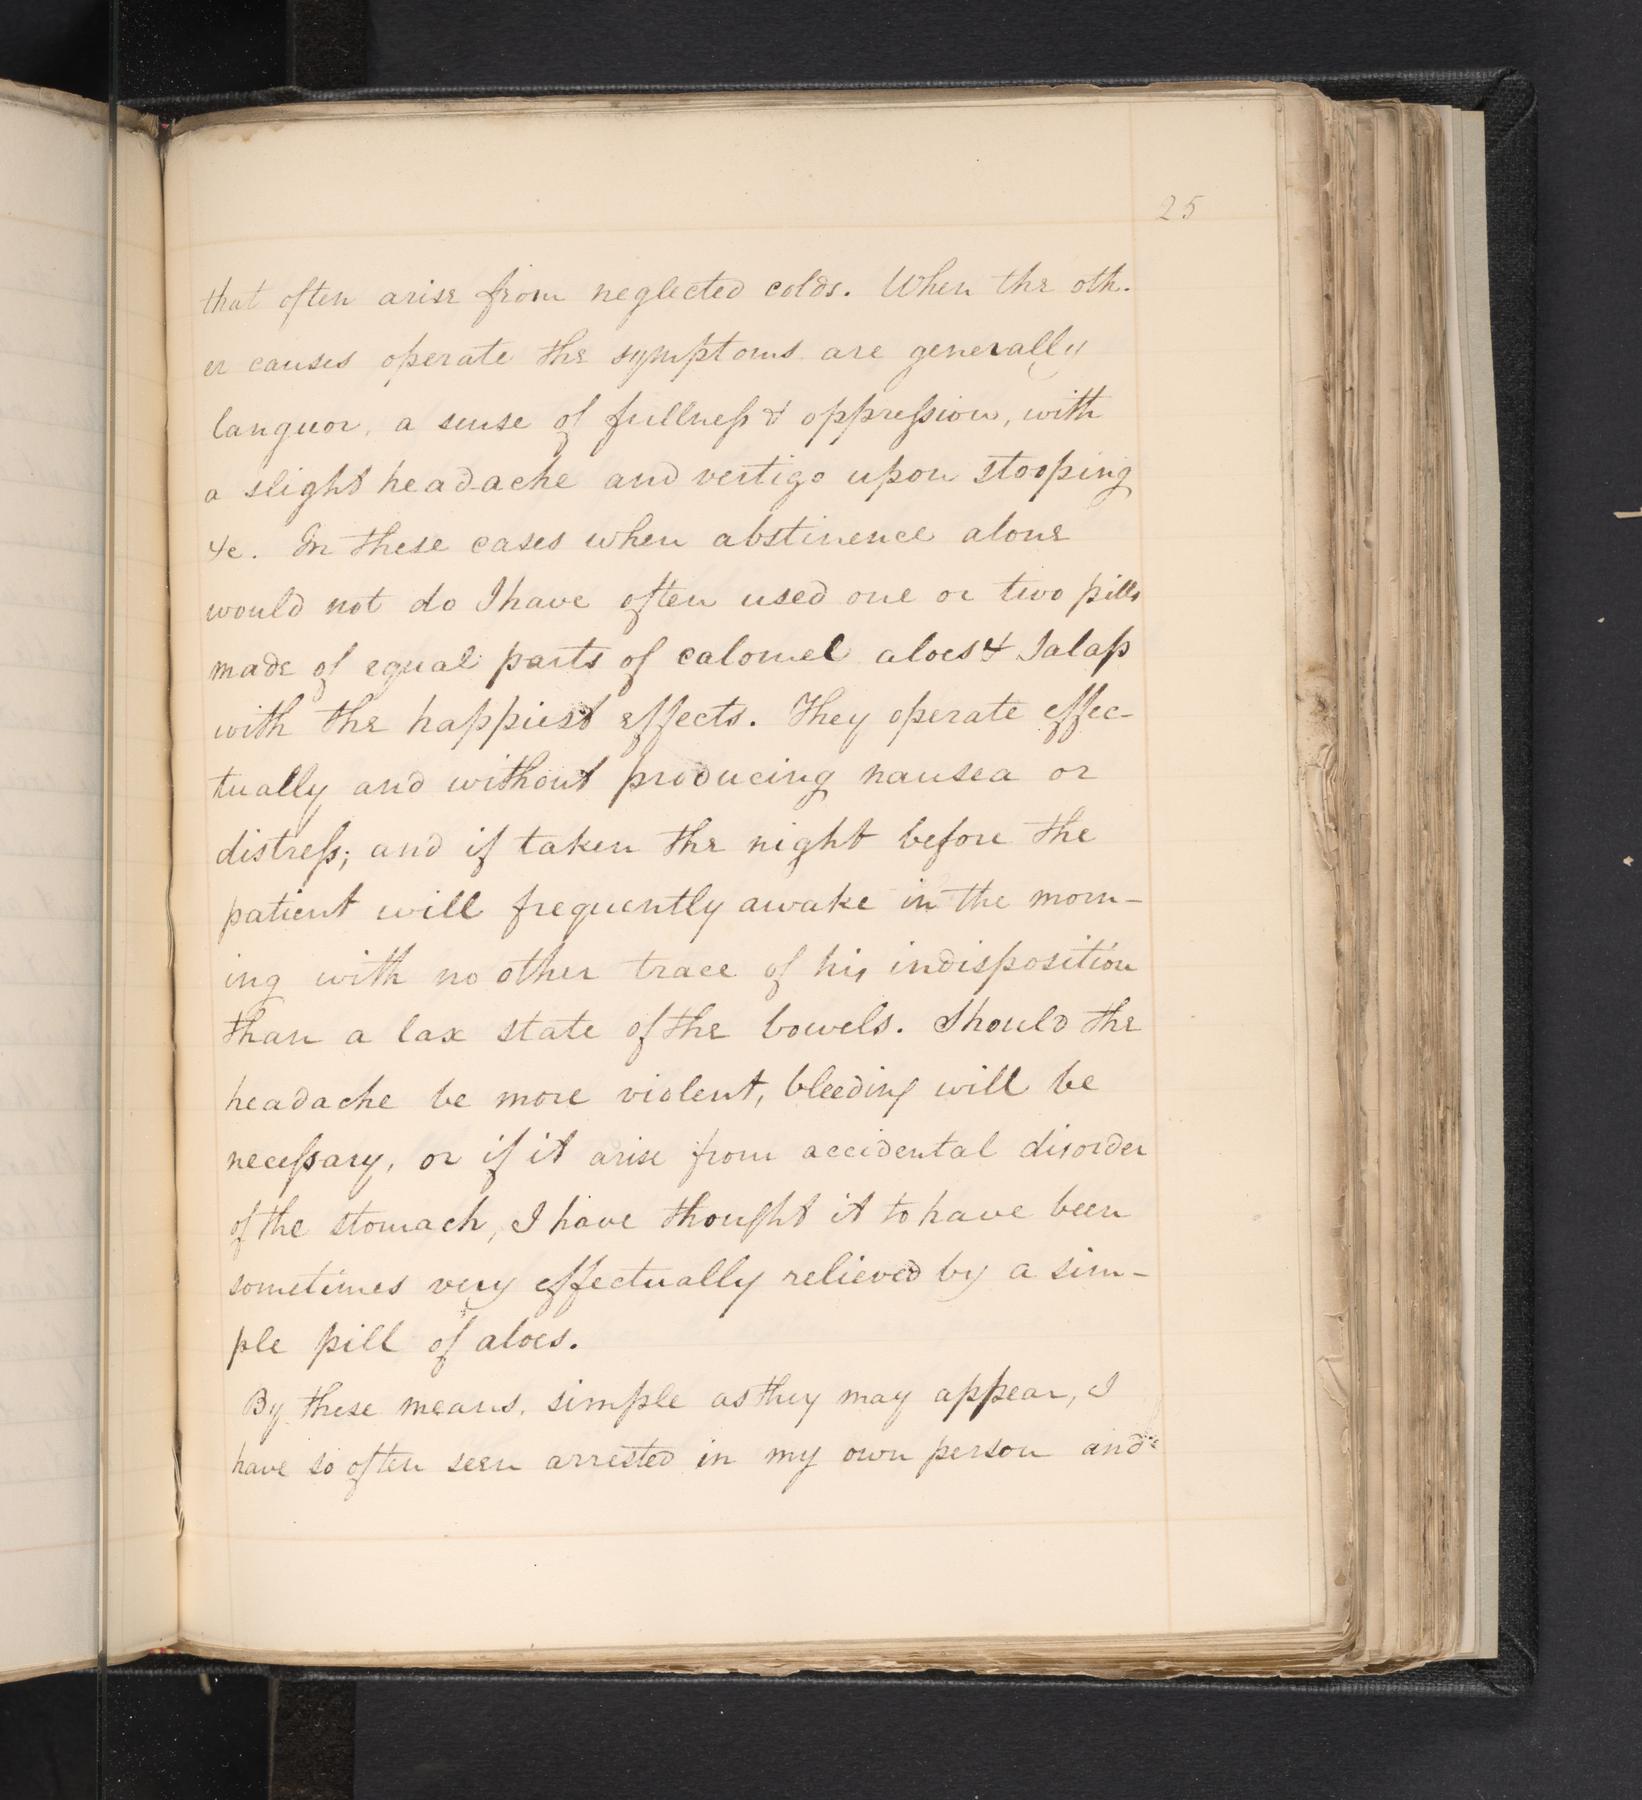 25
that often arise from neglected colds. When the oth-
er causes operate the symptoms are generally
languor, a sense of fullneſs & oppreſsion, with
a slight headache and vertigo upon stooping
&c. In these cases when abstinence alone
would not do I have often used one or two pills
made of equal parts of calomel aloes & Jalap
with the happiest effects. They operate effec-
tually and without producing nausea or
distreſs; and if taken the night before the
patient will frequently awake in the morn-
ing with no other trace of his indisposition
than a lax state of the bowels. Should the
headache be more violent, bleeding will be
neceſsary, or if it arise from accidental disorder
of the stomach, I have thought it to have been
sometimes very effectually relieved by a sim-
ple pill of aloes.
By these means, simple as they may appear, I
have so often seen arrested in my own person and